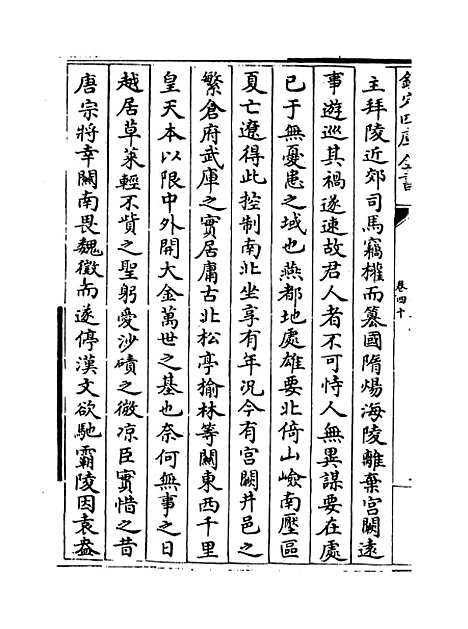 欽定四庫全書
卷四十
主拜陵近郊司馬竊權而簒國隋煬海陵離棄宮闕遠
事遊巡其禍遂速故君人者不可恃人無異謀要在處
已于無憂患之域也燕都地處雄要北倚山嶮南壓區
夏亡遼得此控制南北坐享有年況今有宮闕井邑之
繁倉府武庫之實居庸古北松亭榆林等關東西千里
皇天本以限中外開大金萬世之基也奈何無事之日
越居草萊輕不貲之聖躬愛沙磧之微凉臣實惜之昔
唐宗將幸關南畏魏徵而遂停漢文欲馳霸陵因袁盎